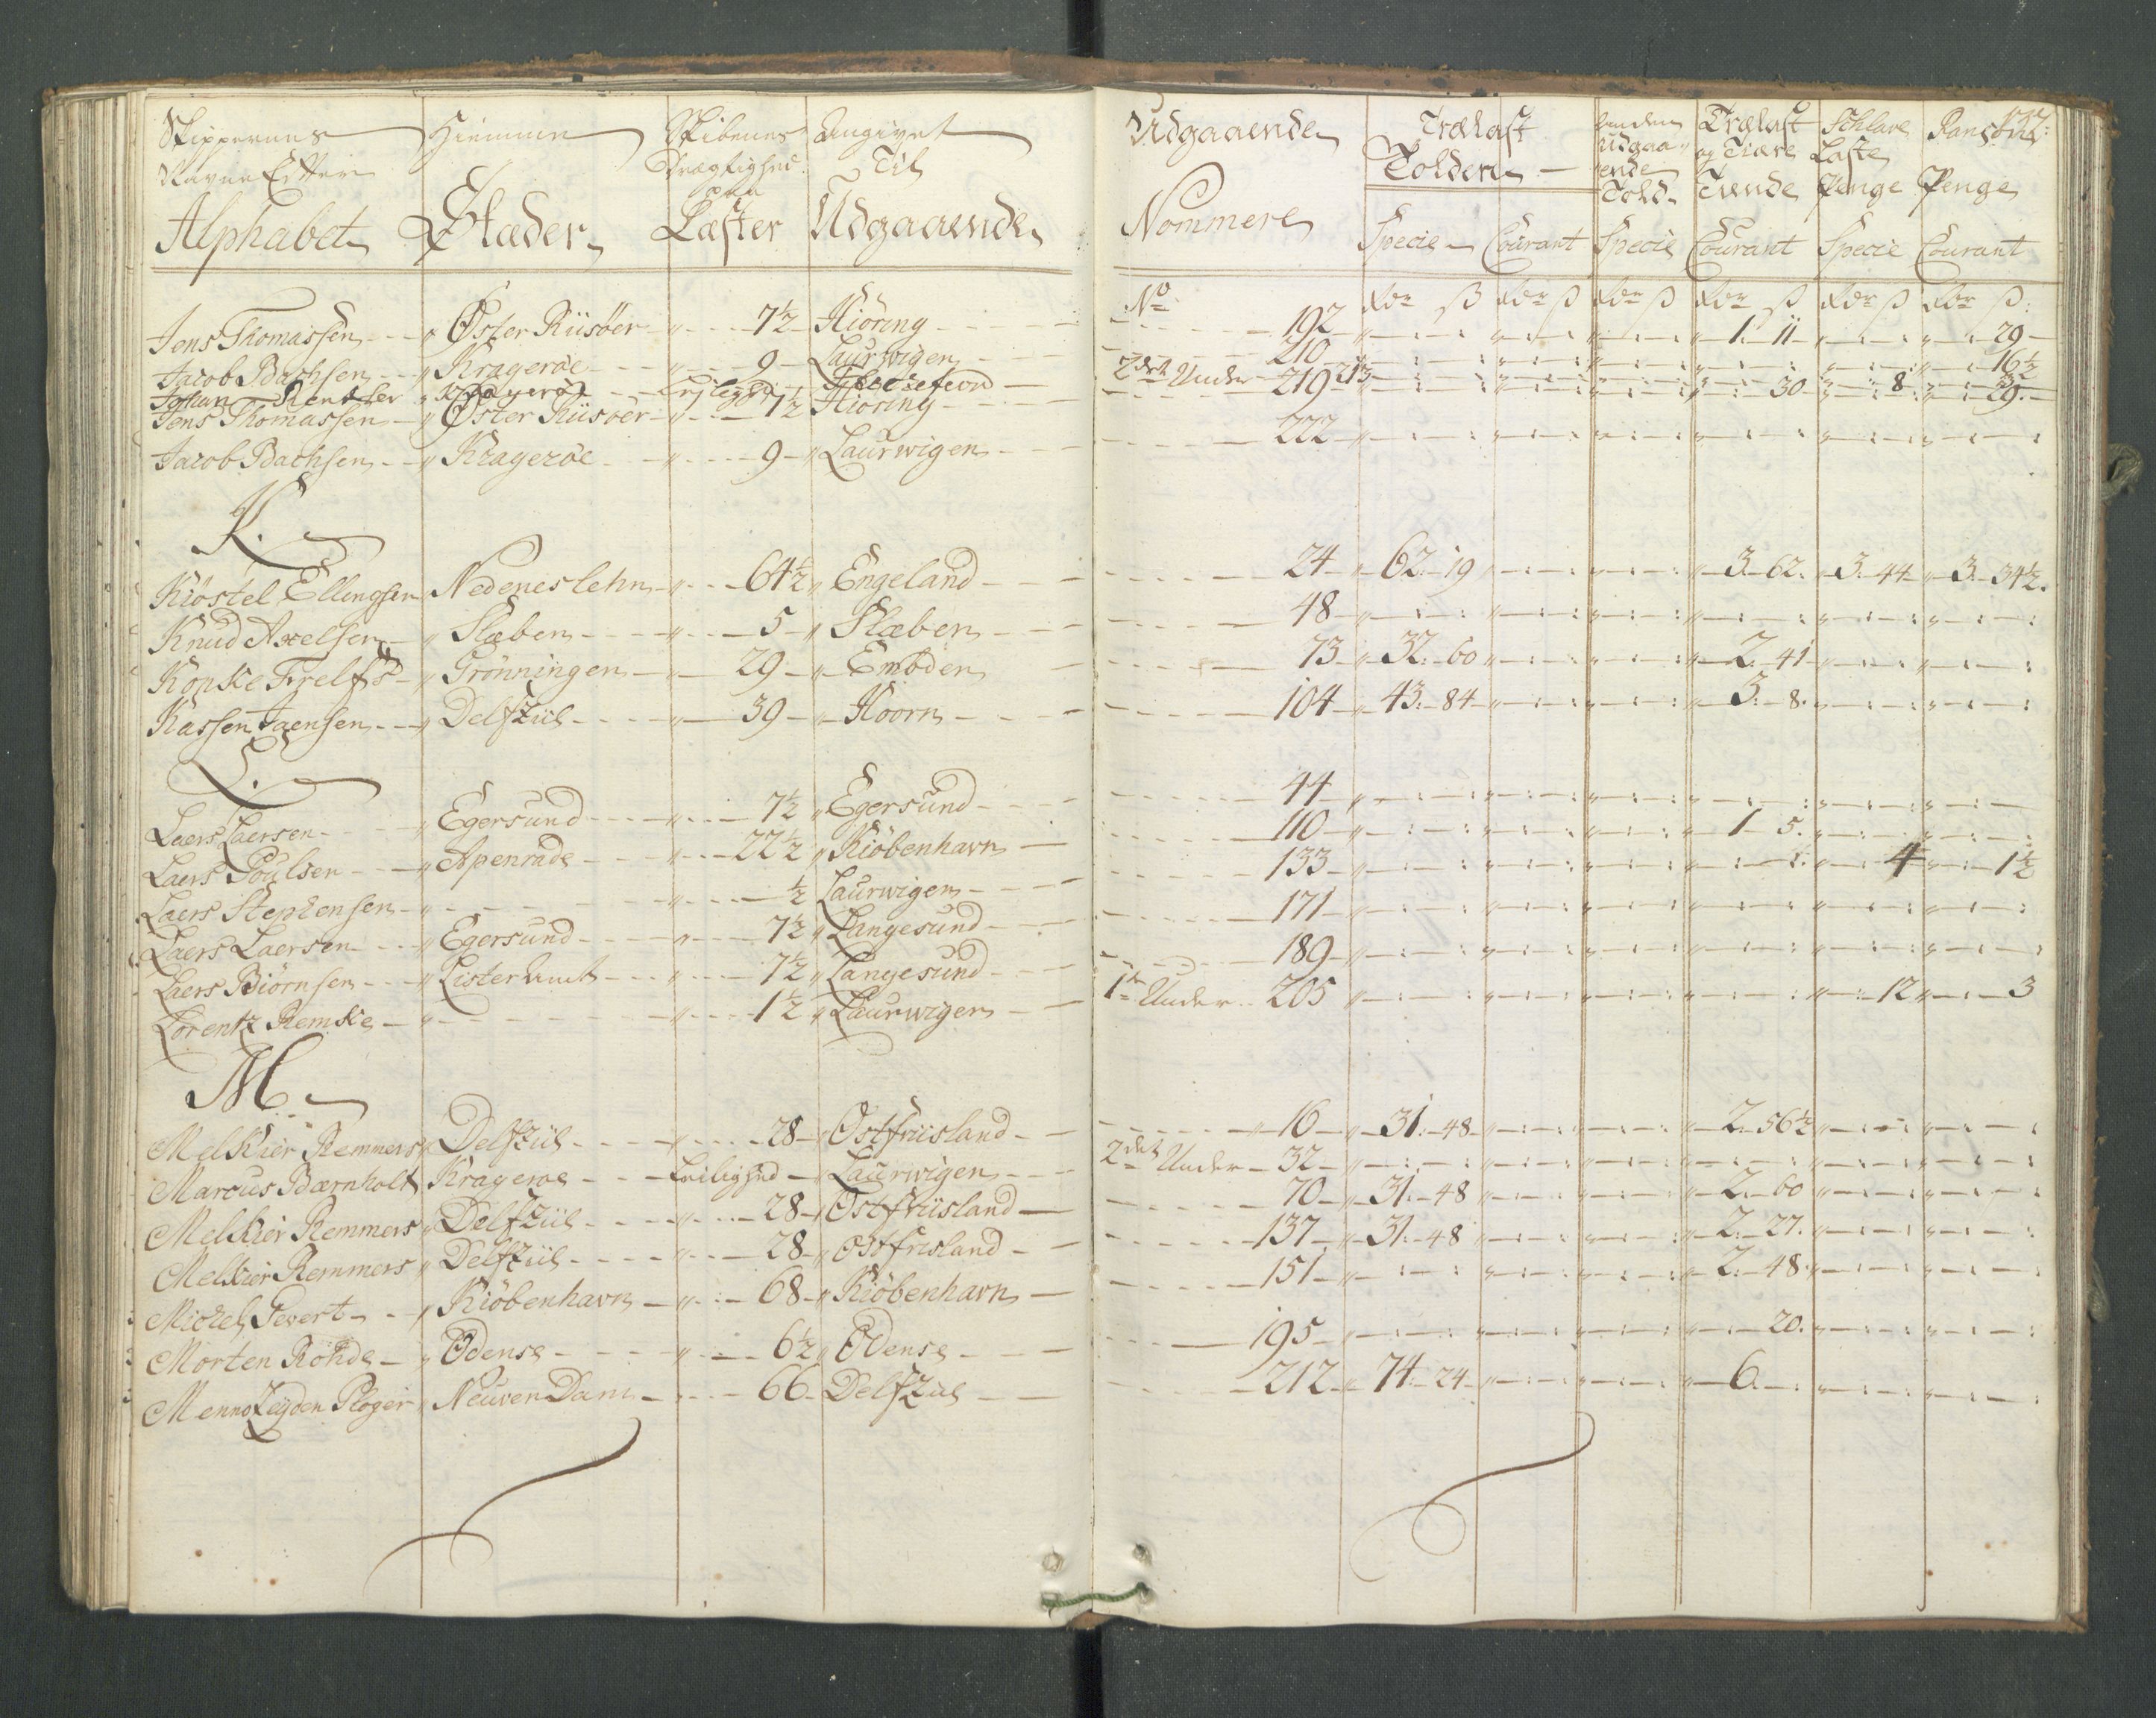 Skippernes Hiemme Skibenes Angivet
Navne Efter Drægtighed Til
paa
Alphabet Stæder Læster Udgaaende
Jens Thomassen " Øster Riisöer " 7½ Hiöring
Jacob Bachsen " Kragerøe " 9 Laurwigen
Johan
Jens Thomassen " Øster Riisöer " 7½ Hiöring
Jacob Bachsen " Kragerøe " 9 " Laurwigen
K.
Kiöstel Ellingsen Nedenes lehn " 64½ " Engeland
Knud Axelsen " Slæben " 5 " Slæben
Köpke Frelfs " Grönningen " 29 " Embden
Kassen Jaensen " Delfziil " 39 " Hoorn
L.
Laers Laersen " Egersund " 7½ " Egersund
Laers Poulsen " Apenrade " 22½ " Kiöbenhavn
Laers Stephensen " " ½ Laurwigen
Laers Laersen " Egersund " 7½ " Langesund
Laers Biörnsen " Lister Amt " 7½ " Langesund
Lorentz Remke " " 1½ " Laurwigen
M
Melkier Remmers " Delfziil " 28 " Ostfriisland
Marcus Barnholt Krageroe Leilighed " Laurwigen
Melkier Remmers " Delfziil " 28 " Ostfriisland
Melkier Remmers " Delfziil " 28 " Ostfrisland
Michel Severt " Kiöbenhavn " 68 " Kiöbenhavn
Morten Rohde " Odense " 6½ " Odense
Menno Zeyden Ploger " Neuven Dam 66 Delfziil
Udgaaende Trælast Anden Trælast Schlave Ransons
Tolden Udgaa- og Tiære Laste
ende
Nommere Told Tiende Penge Penge
Specie Courant Specie Courant Specie Courant
No Rdr ß Rdr ß Rdr ß Rdr ß Rdr ß Rdr ß
192 1 11 29
210 16½
2det Under 219 213 30 8 29
222
24 62 19 3 62 3 44 3 34½
48
73 32 60 2 41
104 43 84 3 8
44
110 1 5
133 4 1½
171
189
1te Under 205 12 3
16 31 48 2 56½
2det Under 32
70 31 48 2 60
137 31 48 2 27
151 2 48
195 20
212 74 24 6